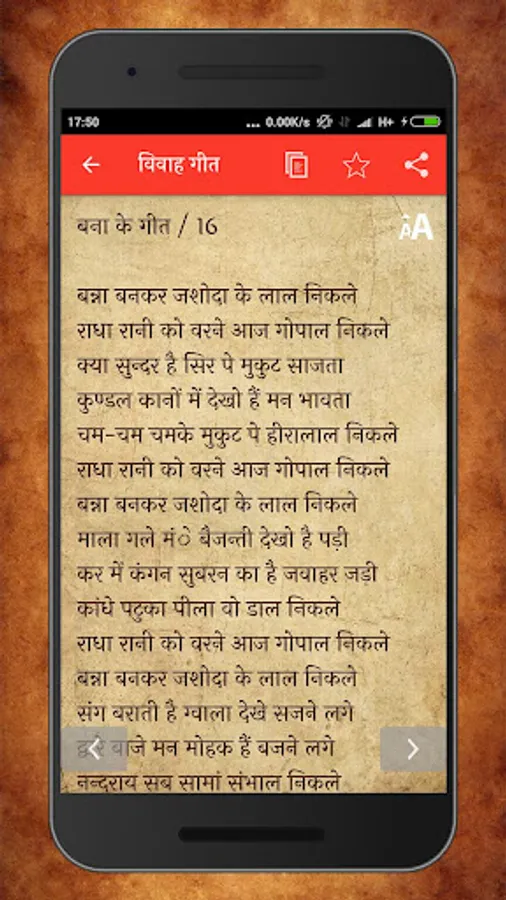 17:50 ... 0.00K/s H+
विवाह गीत
बना के गीत / 16
AA
बन्ना बनकर जशोदा के लाल निकले
राधा रानी को वरने आज गोपाल निकले
क्या सुन्दर है सिर पे मुकुट साजता
कुण्डल कानों में देखो हैं मन भावता
चम-चम चमके मुकुट पे हीरालाल निकले
राधा रानी को वरने आज गोपाल निकले
बन्ना बनकर जशोदा के लाल निकले
माला गले मंे बैजन्ती देखो है पड़ी
कर में कंगन सुबरन का है जवाहर जड़ी
कांधे पटुका पीला वो डाल निकले
राधा रानी को वरने आज गोपाल निकले
बन्ना बनकर जशोदा के लाल निकले
संग बराती है ग्वाला देखे सजने लगे
द्वारे बाजे मन मोहक हैं बजने लगे
नन्दराय सब सामां संभाल निकले